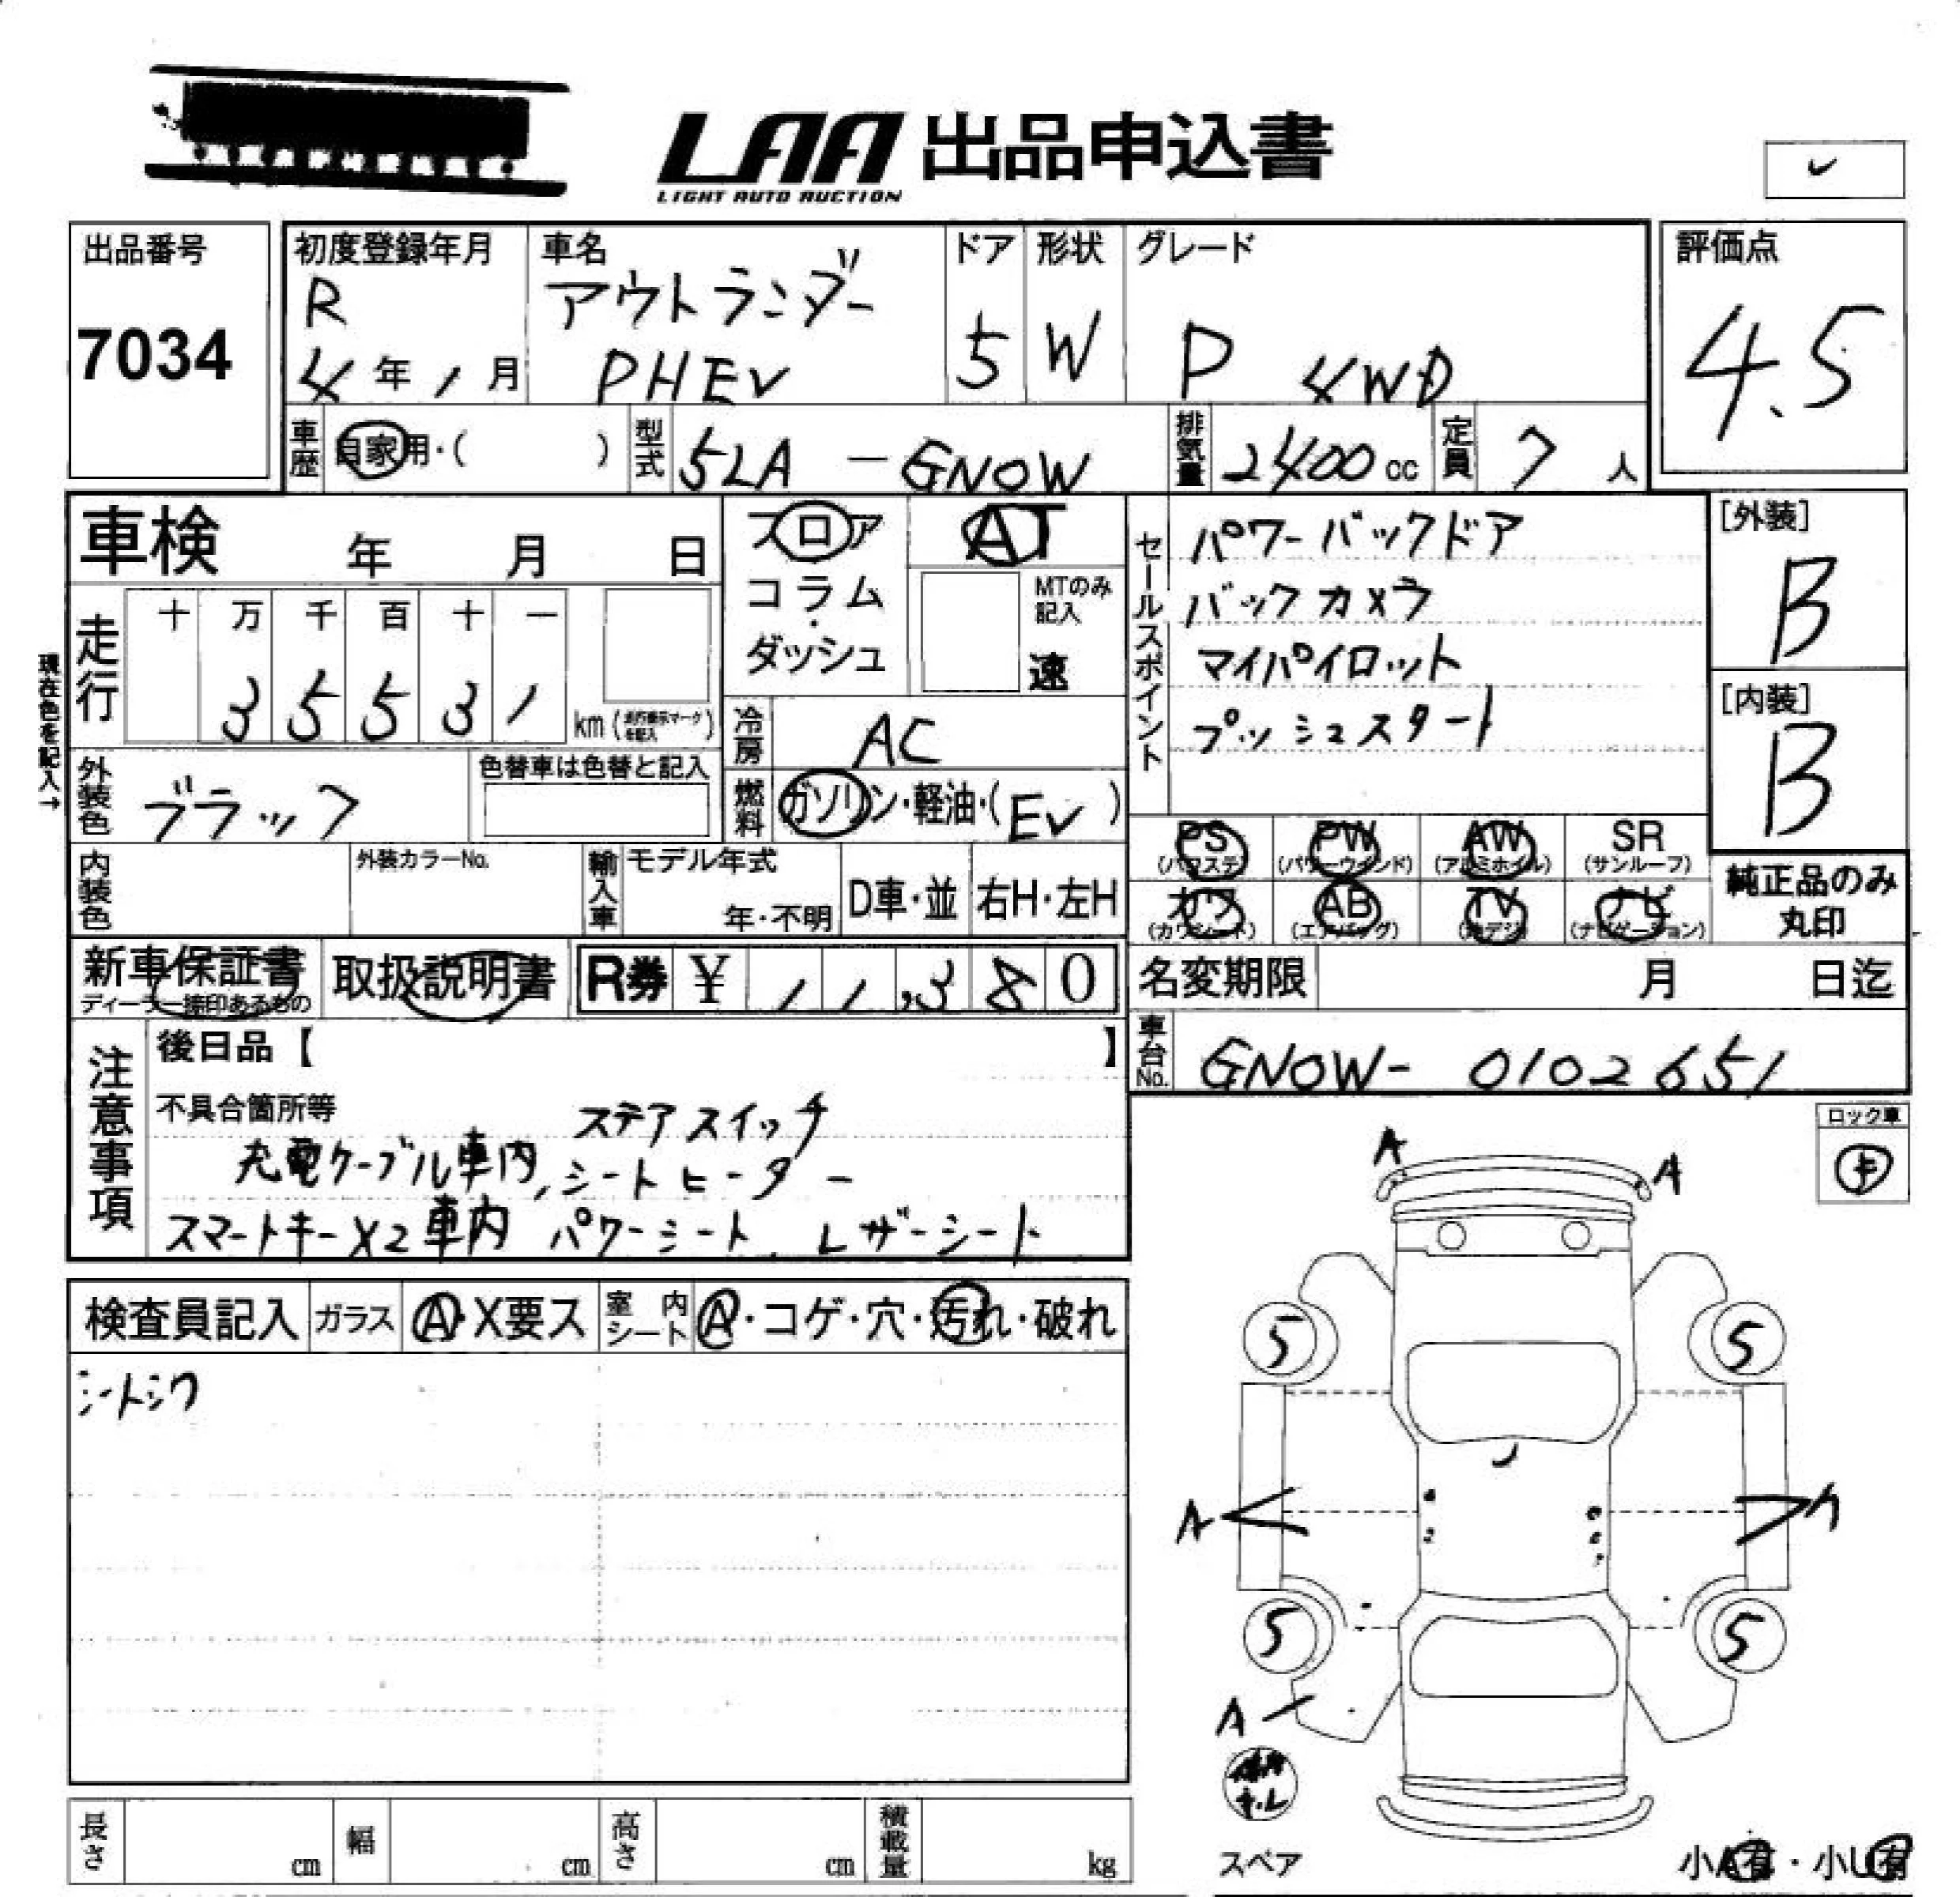 LAA 出品申込書
LIGHT AUTO AUCTION
出品番号
7034
初度登録年月
R
4年1月
車名
アウトランダー
PHEV
ドア
5
形状
W
グレード
P 4WD
評価点
4.5
車歴 自家用・( )
型式 5LA - GN0W
排気量 2400 cc
定員 7 人
車検 年 月 日
フロア
コラム
・
ダッシュ
AT
MTのみ
記入
速
セールスポイント
パワーバックドア
バックカメラ
マイパイロット
プッシュスタート
[外装]
B
[内装]
B
現在色を記入→
走行
十 万 千 百 十 一
3 5 5 3 1
km (走行表示マークを記入)
冷房 AC
外装色 ブラック
色替車は色替と記入
燃料 ガソリン・軽油・(EV)
内装色
外装カラーNo.
輸入車
モデル年式
年・不明
D車・並
右H・左H
PS
(パワステ)
PW
(パワーウインド)
AW
(アルミホイル)
SR
(サンルーフ)
カワ
(カワシート)
AB
(エアバッグ)
TV
(地デジ)
ナビ
(ナビゲーション)
純正品のみ
丸印
新車保証書
ディーラー捺印あるもの
取扱説明書
R券 ¥ 11,380
名変期限 月 日迄
車台No. GN0W- 0102651
注意事項
後日品【 】
不具合箇所等
ステアスイッチ
充電ケーブル車内, シートヒーター
スマートキーX2車内 パワーシート, レザーシート
ロック車
キ
検査員記入
ガラス A・X要ス
室内シート A・コゲ・穴・汚れ・破れ
シートシワ
A
A
5
5
A
5
5
A
スペア
小A有・小U有
長さ cm
幅 cm
高さ cm
積載量 kg